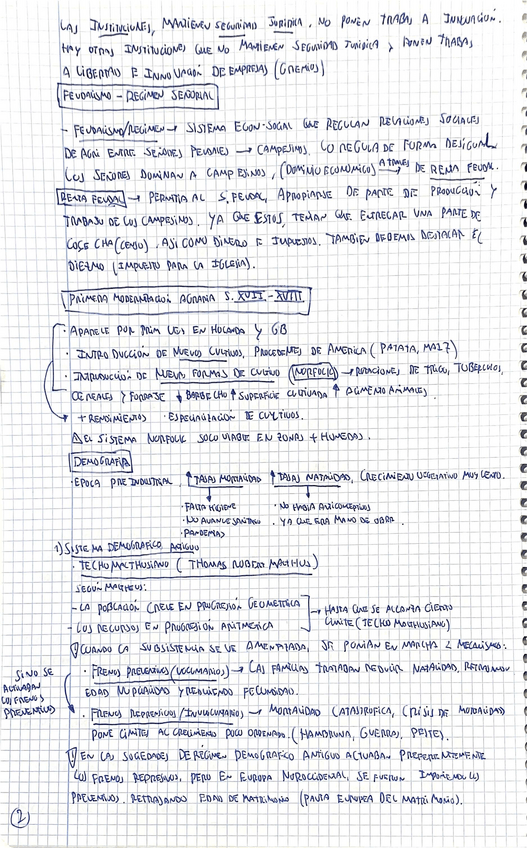 LAS INSTITUCIONES, MANTIENEN SEGURIDAD JURIDICA. NO PONEN TRABAS A INNOVACIÓN.
HAY OTRAS INSTITUCIONES QUE NO MANTIENEN SEGURIDAD JURIDICA Y PONEN TRABAS
A LIBERTAD E INNOVACIÓN DE EMPRESAS (GREMIOS)
FEUDALISMO - REGIMEN SEÑORIAL
- FEUDALISMO/REGIMEN → SISTEMA ECON-SOCIAL QUE REGULAN RELACIONES SOCIALES
DE AGRI ENTRE SEÑORES FEUDALES → CAMPESINOS. LO REGULA DE FORMA DESIGUAL
LOS SEÑORES DOMINAN A CAMPESINOS, (DOMINIO ECONOMICO) A TRAVES → DE RENTA FEUDAL.
RENTA FEUDAL → PERMITIA AL S. FEUDAL, APROPIARSE DE PARTE DE PRODUCCIÓN Y
TRABAJO DE LOS CAMPESINOS. YA QUE ESTOS, TENIAN QUE ENTREGAR UNA PARTE DE
COSECHA (CENSO), ASI COMO DINERO E IMPUESTOS. TAMBIEN DEBEMOS DESTACAR EL
DIEZMO (IMPUESTO PARA LA IGLESIA).
PRIMERA MODERNIZACIÓN AGRARIA S. XVII - XVIII
· APARECE POR PRIM VES EN HOLANDA Y GB
· INTRODUCCIÓN DE NUEVOS CULTIVOS, PROCEDENTES DE AMERICA (PATATA, MAIZ)
· INTRODUCCIÓN DE NUEVAS FORMAS DE CULTIVO (NORFOLK) → ROTACIONES DE TRIGO, TUBERCULOS,
CEREALES Y FORRAJE ↓ BARBECHO ↑ SUPERFICIE CULTIVADA ↑ ALIMENTO ANIMALES.
+ RENDIMIENTOS · ESPECIALIZACIÓN DE CULTIVOS.
△ EL SISTEMA NORFOLK SOLO VIABLE EN ZONAS + HUMEDAS.
DEMOGRAFIA
· EPOCA PREINDUSTRIAL, ↑ TASAS MORTALIDAD ↑ TASAS NATALIDAD, CRECIMIENTO VEGETATIVO MUY LENTO.
· FALTA HIGIENE · NO HABIA ANTICONCEPTIVOS
· NO AVANCE SANITARIO · YA QUE ERA MANO DE OBRA.
· PANDEMIAS
1) SISTEMA DEMOGRAFICO ANTIGUO
· TECHO MALTHUSIANO (THOMAS ROBERT MALTHUS)
SEGÚN MALTHUS:
- LA POBLACIÓN CRECE EN PROGRESIÓN GEOMETRICA → HASTA QUE SE ALCANZA CIERTO
- LOS RECURSOS EN PROGRESIÓN ARITMETICA LIMITE (TECHO MALTHUSIANO)
CUANDO LA SUBSISTENCIA SE VE AMENAZADA, SE PONIAN EN MARCHA 2 MECANISMOS:
· FRENOS PREVENTIVOS (VOLUNTARIOS) → LAS FAMILIAS TRATABAN REDUCIR NATALIDAD, RETRASANDO
EDAD NUPCIALIDAD Y REDUCIENDO FECUNDIDAD.
SI NO SE
ACTIVABAN
LOS FRENOS
PREVENTIVOS
· FRENOS REPRESIVOS/INVOLUNTARIOS → MORTALIDAD CATASTROFICA, CRISIS DE MORTALIDAD
PONE LIMITES AL CRECIMIENTO POCO ORDENADO. (HAMBRUNA, GUERRAS, PESTE).
EN LA SOCIEDADES DE RÉGIMEN DEMOGRAFICO ANTIGUO ACTUABAN PREFERENTEMENTE
LOS FRENOS REPRESIVOS, PERO EN EUROPA NOROCCIDENTAL, SE FUERON IMPONIENDO LOS
PREVENTIVOS. RETRASANDO EDAD DE MATRIMONIO (PAUTA EUROPEA DEL MATRIMONIO).
2